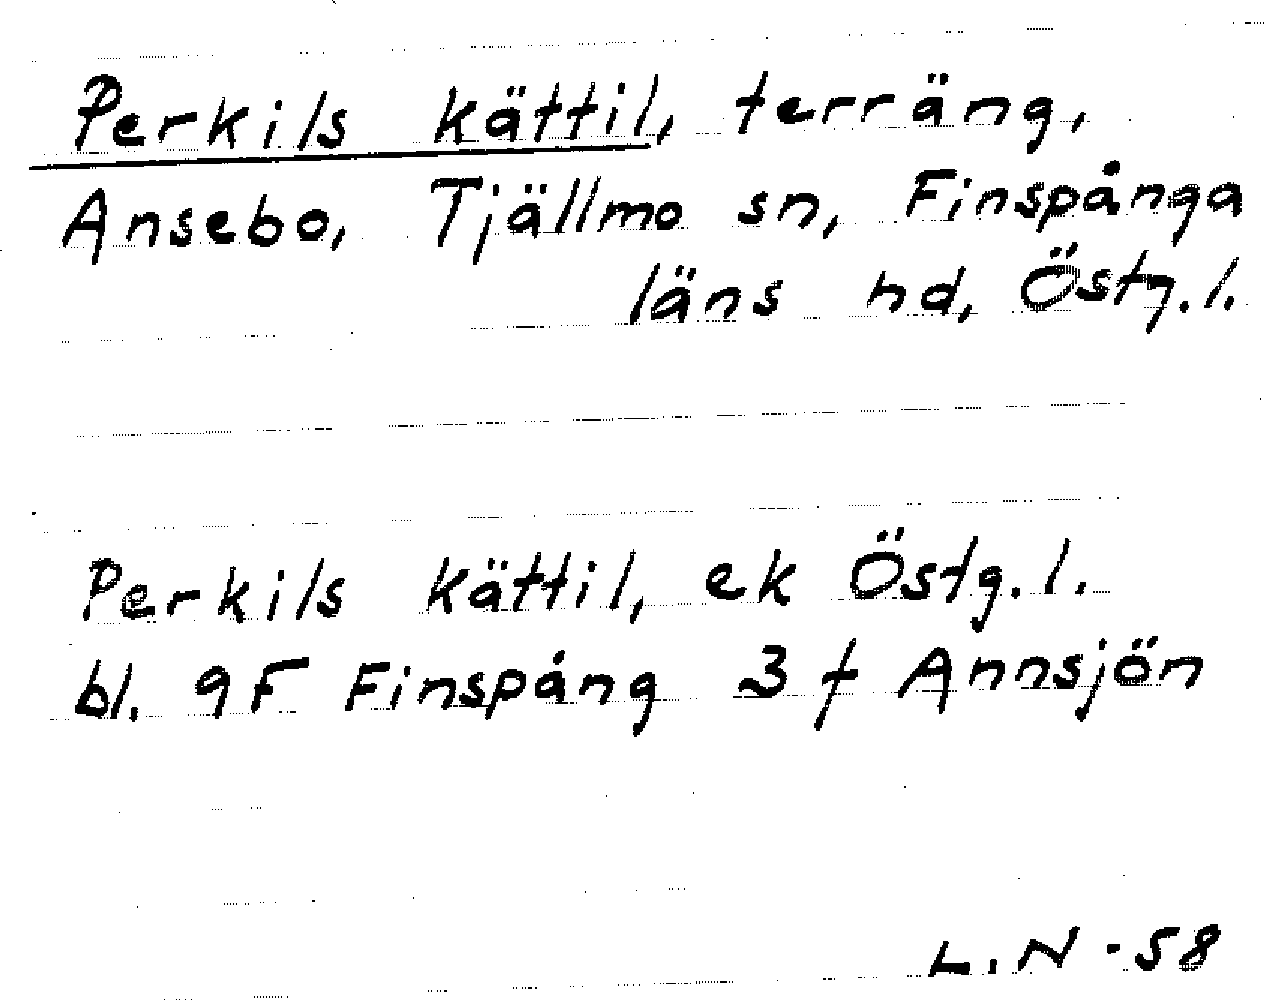 Perkils kättil, terräng,
Ansebo, Tjällmo sn, Finspånga
läns hd, Östg.l.
Perkils kättil, ek Östg.l.
bl. 9F Finspång 3 f Annsjön
L.N -58